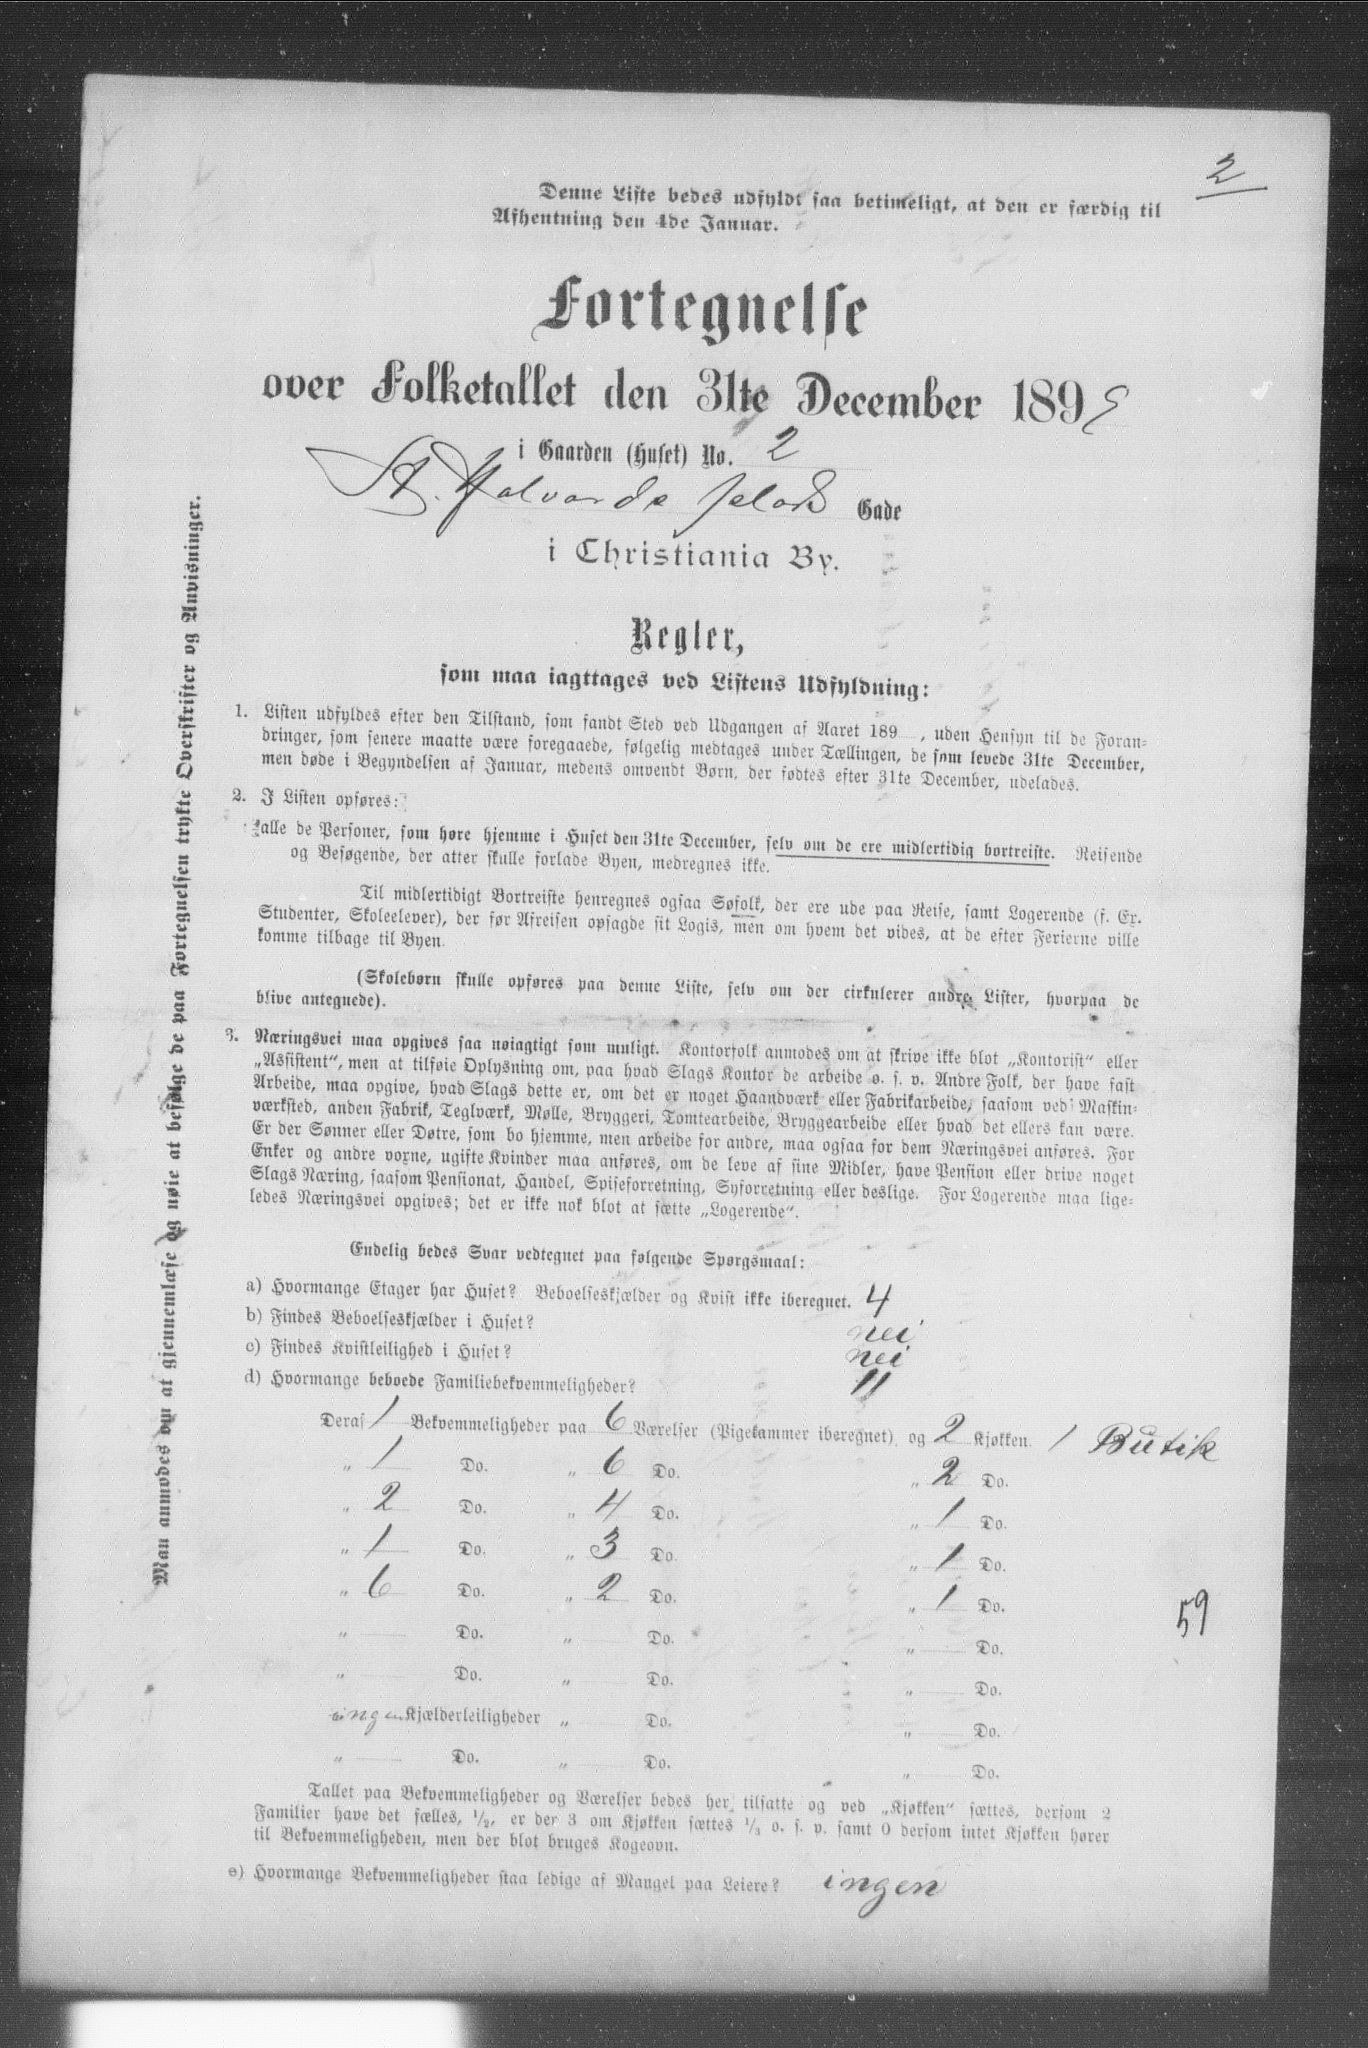 2
Denne Liste bedes udfyldt saa betimeligt, at den er færdig til
Afhentning den 4de Januar.
Fortegnelse
over Folketallet den 31te December 189
i Gaarden (Huset) No. 2
St. Halvards Gade
i Christiania By.
Regler,
som maa iagttages ved Listens Udfyldning:
1. Listen udfyldes efter den Tilstand, som fandt Sted ved Udgangen af Aaret 189 , uden Hensyn til de Foran-
dringer, som senere maatte være foregaaede, følgelig medtages under Tællingen, de som levede 31te December,
men døde i Begyndelsen af Januar, medens omvendt Børn, der fødtes efter 31te December, udelades.
2. I Listen opføres:
alle de Personer, som høre hjemme i Huset den 31te December, selv om de ere midlertidig bortreiste. Reisende
og Besøgende, der atter skulle forlade Byen, medregnes ikke.
Til midlertidigt Bortreiste henregnes ogsaa Søfolk, der ere ude paa Reise, samt Logerende (f. Ex.
Studenter, Skoleelever), der før Afreisen opsagde sit Logis, men om hvem det vides, at de efter Ferierne ville
komme tilbage til Byen.
(Skolebørn skulle opføres paa denne Liste, selv om der cirkulerer andre Lister, hvorpaa de
blive antegnede).
3. Næringsvei maa opgives saa nøiagtigt som muligt. Kontorfolk anmodes om at skrive ikke blot „Kontorist“ eller
„Assistent“, men at tilføie Oplysning om, paa hvad Slags Kontor de arbeide o. s. v. Andre Folk, der have fast
Arbeide, maa opgive, hvad Slags dette er, om det er noget Haandværk eller Fabrikarbeide, saasom ved Maskin-
værksted, anden Fabrik, Teglværk, Mølle, Bryggeri, Tomtearbeide, Bryggearbeide eller hvad det ellers kan være.
Er der Sønner eller Døtre, som bo hjemme, men arbeide for andre, maa ogsaa for dem Næringsvei anføres. For
Enker og andre voxne, ugifte Kvinder maa anføres, om de leve af sine Midler, have Pension eller drive noget
Slags Næring, saasom Pensionat, Handel, Spiseforretning, Syforretning eller deslige. For Logerende maa lige-
ledes Næringsvei opgives; det er ikke nok blot at sætte „Logerende“.
Endelig bedes Svar vedtegnet paa følgende Spørgsmaal:
a) Hvormange Etager har Huset? Beboelseskjælder og Kvist ikke iberegnet. 4
b) Findes Beboelseskjælder i Huset? nei
c) Findes Kvistleilighed i Huset? nei
d) Hvormange beboede Familiebekvemmeligheder? 11
Deraf 1 Bekvemmeligheder paa 6 Værelser (Pigekammer iberegnet) og 2 Kjøkken. 1 Butik
„ 1 Do. „ 6 Do. „ 2 Do.
„ 2 Do. „ 4 Do. „ 1 Do.
„ 1 Do. „ 3 Do. „ 1 Do.
„ 6 Do. „ 2 Do. „ 1 Do.
59
„ Do. „ Do. „ Do.
„ Do. „ Do. „ Do.
ingen Kjælderleiligheder „ Do. „ Do.
„ Do. „ Do. „ Do.
Tallet paa Bekvemmeligheder og Værelser bedes her tilsatte og ved „Kjøkken“ sættes, dersom 2
Familier have det fælles, 1/2, er der 3 om Kjøkken sættes 1/3 o. s. v. samt 0 dersom intet Kjøkken hører
til Bekvemmeligheden, men der blot bruges Kogeovn.
e) Hvormange Bekvemmeligheder staa ledige af Mangel paa Leiere? ingen
Man anmodes om at gjennemlæse og nøie at befølge de paa Fortegnelsen trykte Overskrifter og Anvisninger.